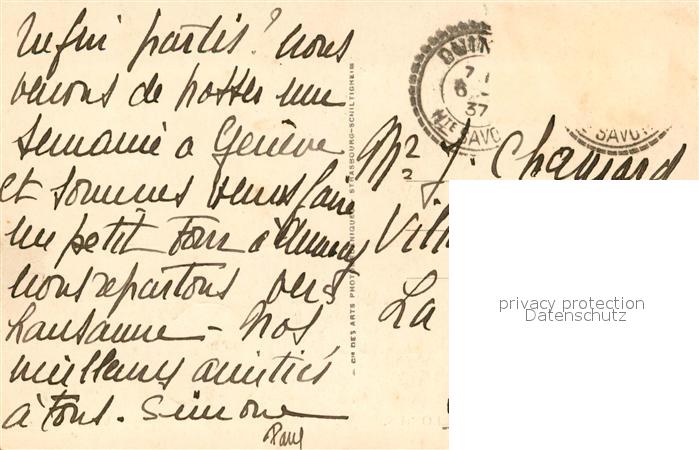 Enfin partis! Nous
venons de passer une
semaine à Genève
et sommes venus faire
un petit tour à Annecy
nous repartons vers
Lausanne - Nos
meilleures amitiés
à tous. Simone
Paul
Cie DES ARTS PHOTOMÉCANIQUES STRASBOURG-SCHILTIGHEIM
37
Hte SAVOIE
SAVOIE
Mr J. Chagnard
Villa
La
privacy protection
Datenschutz